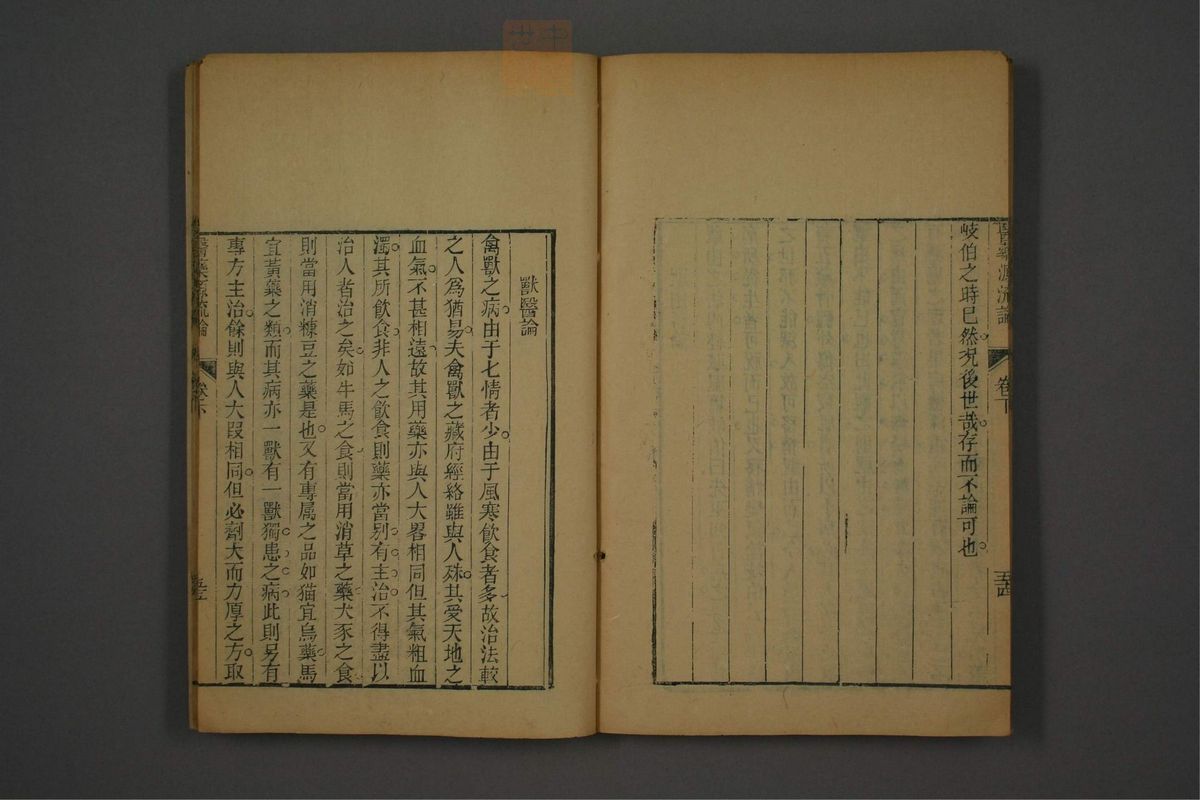 醫藥源流論 卷下 五十四
岐伯之時已然況後世哉存而不論可也
獸醫論
禽獸之病由于七情者少由于風寒飲食者多故治法較
之人為猶易夫禽獸之藏府經絡雖與人殊其受天地之
血氣不甚相遠故其用藥亦與人大畧相同但其氣粗血
濁其所飲食非人之飲食則藥亦當别有主治不得盡以
治人者治之矣如牛馬之食則當用消草之藥犬豕之食
則當用消糠豆之藥是也又有專属之品如猫宜烏藥馬
宜黃藥之類而其病亦一獸有一獸獨患之病此則另有
專方主治餘則與人大叚相同但必劑大而力厚之方取
醫藥源流論 卷下